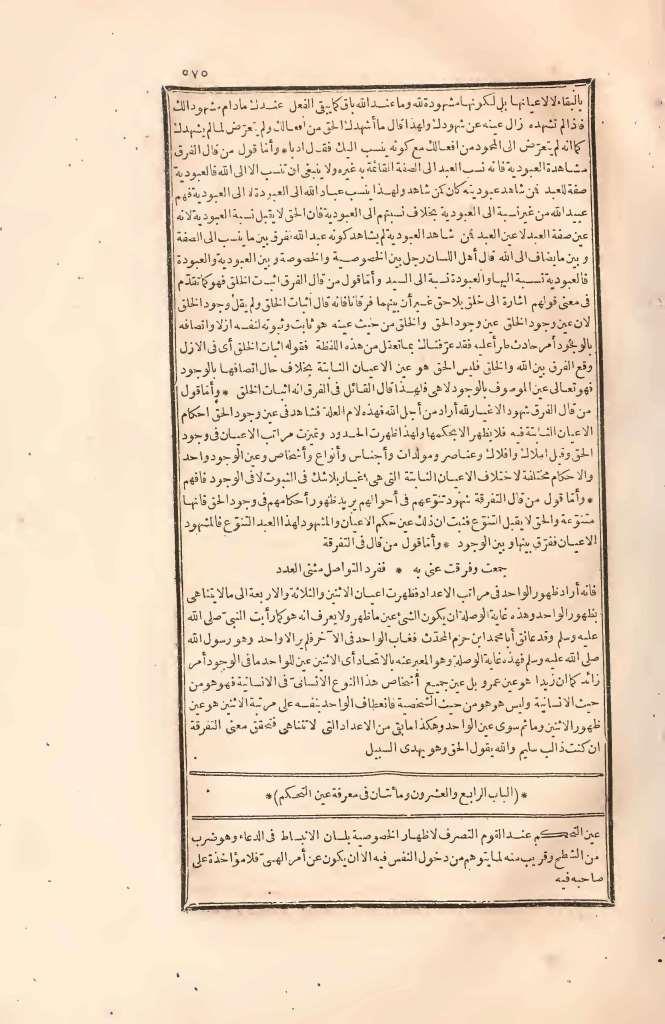 ٥٧٥
بالبقاء لا لاعيانها بل لكونها مشهودة لله وما عند الله باق كما يبقى الفعل عندك ما دام مشهودا لك
فاذا لم تشهده زال عينه عن شهودك ولهذا قال ما أشهدك الحق من أفعالك ولم يتعرّض لما لم يشهدك
كما انه لم يتعرّض الى المحمود من افعالك مع كونه ينسب اليك فقل ادبا * وأما قول من قال الفرق
مشاهدة العبودية فانه نسب العبد الى الصفة القائمة به غيره ولا ينبغى ان تنسب الا الى الله فالعبودية
صفة للعبد فمن شاهد عبوديته كان كمن شاهد ولهذا ينسب عباد الله الى العبودة لا الى العبودية فهم
عبيد الله من غير نسبة الى العبودية بخلاف نسبتهم الى العبودية فان الحق لا يقبل نسبة العبودية لانه
عين صفة العبد لا عين العبد فمن شاهد العبودية لم يشاهد كونه عبد الله ففرق بين ما ينسب الى الصفة
وبين ما يضاف الى الله قال أهل اللسان رجل بين الخصوصية والخصوصة وبين العبودية والعبودة
فالعبودية نسبة اليها والعبودة نسبة الى السيد وأما قول من قال الفرق اثبات الخلق فهو كما تقدّم
فى معنى قولهم اشارة الى خلق بلا حق غير أن بينهما فرقانا فانه قال اثبات الخلق ولم يقل وجود الخلق
لان عين وجود الخلق عين وجود الحق والخلق من حيث عينه هو ثابت وثبوته لنفسه ازلا واتصافه
بالوجود أمر حادث طرأ عليه فقد عرّفناك بما تعقل من هذه اللفظة فقوله اثبات الخلق أى فى الازل
وقع الفرق بين الله والخلق فليس الحق هو عين الاعيان الثابتة بخلاف حال اتصافها بالوجود
فهو تعالى عين الموصوف بالوجود لا هى فلهذا قال القائل فى الفرق انه اثبات الخلق * وأما قول
من قال الفرق شهود الاغيار لله أراد من أجل الله فهذه لام العلة فشاهد فى عين وجود الحق احكام
الاعيان الثابتة فيه فلا يظهر الا بحكمها ولهذا ظهرت الحدود وتميزت مراتب الاعيان فى وجود
الحق وقيل املاك وافلاك وعناصر ومولدات وأجناس وأنواع وأشخاص وعين الوجود واحد
والاحكام مختلفة لاختلاف الاعيان الثابتة التى هى اغيار بلا شك فى الثبوت لا فى الوجود فافهم
* وأما قول من قال التفرقة شهود تنوّعهم فى أحوالهم يريد ظهور أحكامهم فى وجود الحق فانها
متنوّعة والحق لا يقبل التنوّع فثبت ان ذلك عين حكم الاعيان والمشهود لهذا العبد التنوّع فالمشهود
الاعيان ففرّق بينها وبين الوجود * وأما قول من قال فى التفرقة
جمعت وفرقت عنى به * ففرد التواصل مثنى العدد
فانه أراد ظهور الواحد فى مراتب الاعداد فظهرت اعيان الاثنين والثلاثة والاربعة الى ما لا يتناهى
بظهور الواحد وهذه غاية الوصلة ان يكون الشئ عين ما ظهر ولا يعرف انه هو كما رأيت النبىّ صلى الله
عليه وسلم وقد عانق أبا محمد ابن حزم المحدّث فغاب الواحد فى الآخر فلم ير الا واحد وهو رسول الله
صلى الله عليه وسلم فهذه غاية الوصلة وهو المعبر عنه بالاتحاد أى الاثنين عين الواحد ما فى الوجود أمر
زائد كما ان زيدا هو عين عمرو بل عين جميع أشخاص هذا النوع الانسانىّ فى الانسانية فهو هو من
حيث الانسانية وليس هو هو من حيث الشخصية فانعطاف الواحد بنفسه على مرتبة الاثنين هو عين
ظهور الاثنين وما ثم سوى عين الواحد وهكذا ما بقى من الاعداد التى لا تتناهى فتحقق معنى التفرقة
ان كنت ذا لب سليم والله يقول الحق وهو يهدى السبيل
* (الباب الرابع والعشرون ومائتان فى معرفة عين التحكم) *
عين التحكم عند القوم التصرف لاظهار الخصوصية بلسان الانبساط فى الدعاء وهو ضرب
من الشطح وقريب منه لما يتوهم من دخول النفس فيه الا ان يكون عن أمر الهىّ فلا مؤاخذة على
صاحبه فيه